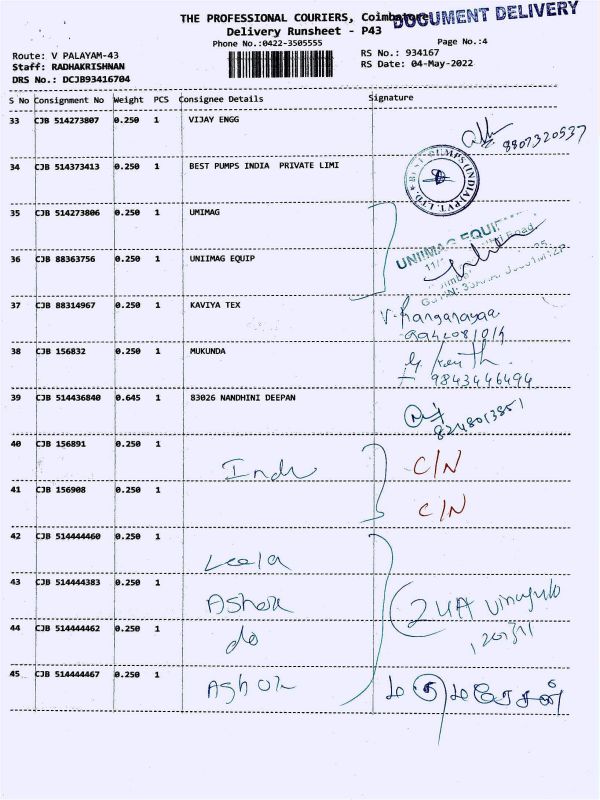 THE PROFESSIONAL COURIERS, Coimbatore
DOCUMENT DELIVERY
Delivery Runsheet - P43
Phone No.:0422-3505555
Page No.:4
Route: V PALAYAM-43
RS No.: 934167
Staff: RADHAKRISHNAN
RS Date: 04-May-2022
DRS No.: DCJB93416704
S No Consignment No Weight PCS Consignee Details Signature
33 CJB 514273807 0.250 1 VIJAY ENGG
8807320537
34 CJB 514373413 0.250 1 BEST PUMPS INDIA PRIVATE LIMI
BEST PUMPS (INDIA) PVT. LTD.
35 CJB 514273806 0.250 1 UMIMAG
36 CJB 88363756 0.250 1 UNIIMAG EQUIP
UNIIMAG EQUIP
37 CJB 88314967 0.250 1 KAVIYA TEX
V. Ranganayaa
38 CJB 156832 0.250 1 MUKUNDA
9843446494
39 CJB 514436840 0.645 1 83026 NANDHINI DEEPAN
8248013851
40 CJB 156891 0.250 1 C/N
41 CJB 156908 0.250 1 C/N
42 CJB 514444460 0.250 1 Leela
43 CJB 514444383 0.250 1 Ashok
44 CJB 514444462 0.250 1 do
45 CJB 514444467 0.250 1 Ashok